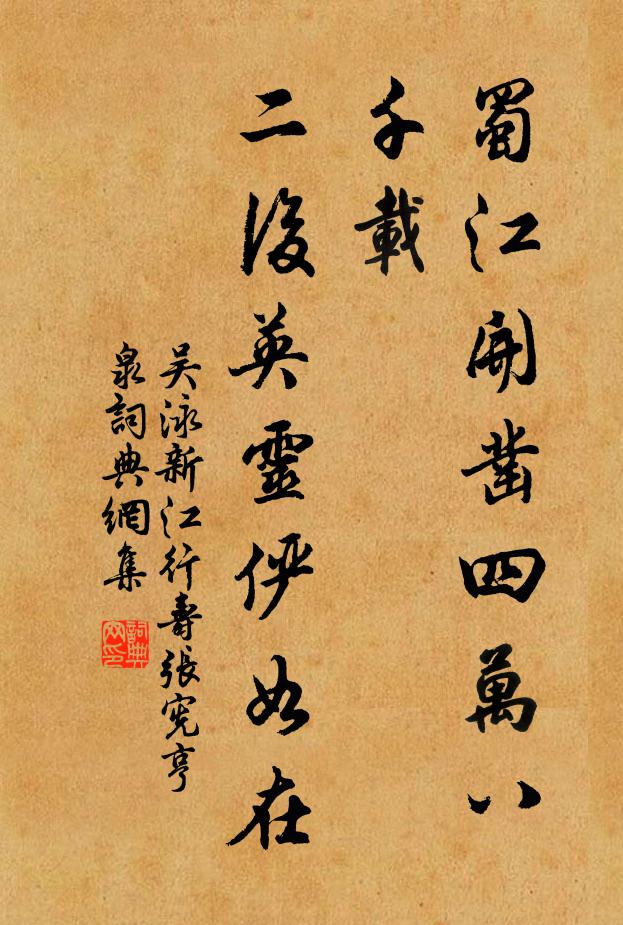 蜀江開鑿四萬八
千載
二後英靈儼如在
吴泳新江行壽張宪亨
泉詞典網集
詞典
网印